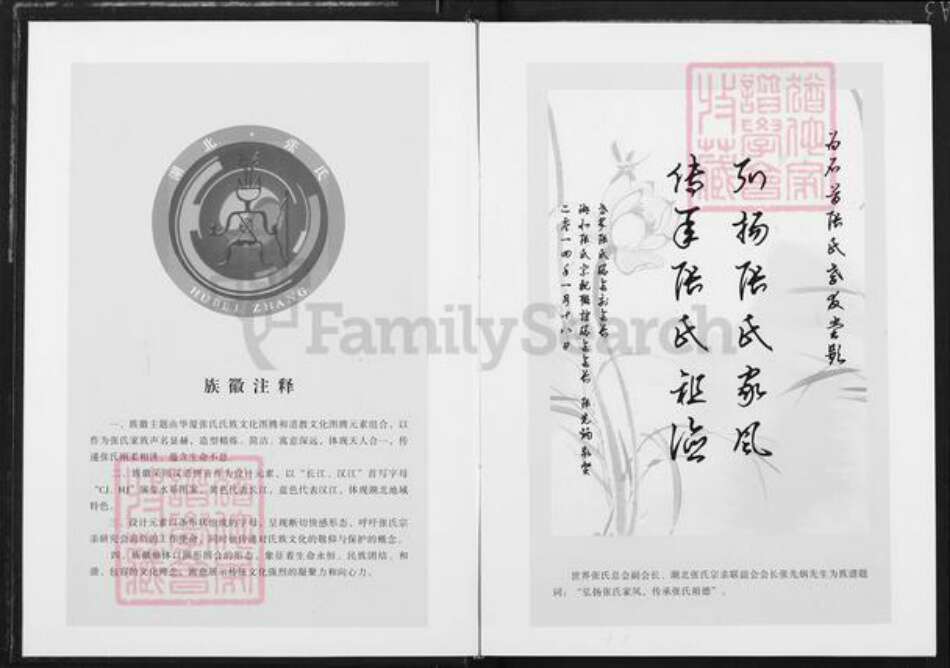 湖北·张氏
HUBEI ZHANG
族徽注释
一、族徽主题由华厦张氏氏族文化图腾和道教文化图腾元素组合，以
作为张氏家族声名显赫，造型精炼、简洁、寓意深远，体现天人合一，传
递张氏刚柔相济，蕴含生命不息。
二、族徽采用汉语拼音作为设计元素，以“长江、汉江”首写字母
“CJ、HJ”演变水系图案，黄色代表长江，蓝色代表汉江，体现湖北地域
特色。
三、设计元素以条形状组成的字母，呈现断切快感形态，呼吁张氏宗
亲研究会肩负的工作使命，同时也传递对氏族文化的敬仰与保护的概念。
四、族徽整体以圆形图合的形态，象征着生命永恒、民族团结、和
谐、包容的文化理念，寓意展示传统文化强烈的凝聚力和向心力。
弘扬张氏家风
传承张氏祖德
二零一四年一月十八日
世界张氏总会副会长、湖北张氏宗亲联谊会会长张先炳先生为族谱题
词：“弘扬张氏家风，传承张氏祖德”。
FamilySearch